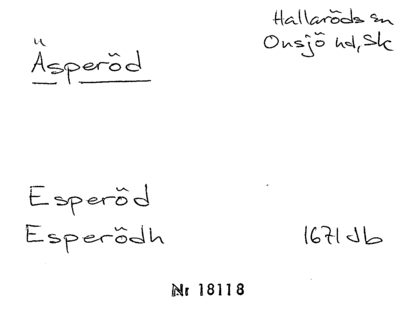 Hallaröds sn
Äsperöd Onsjö hd, Sk
Esperöd
Esperödh 1671 db
Nr 18118